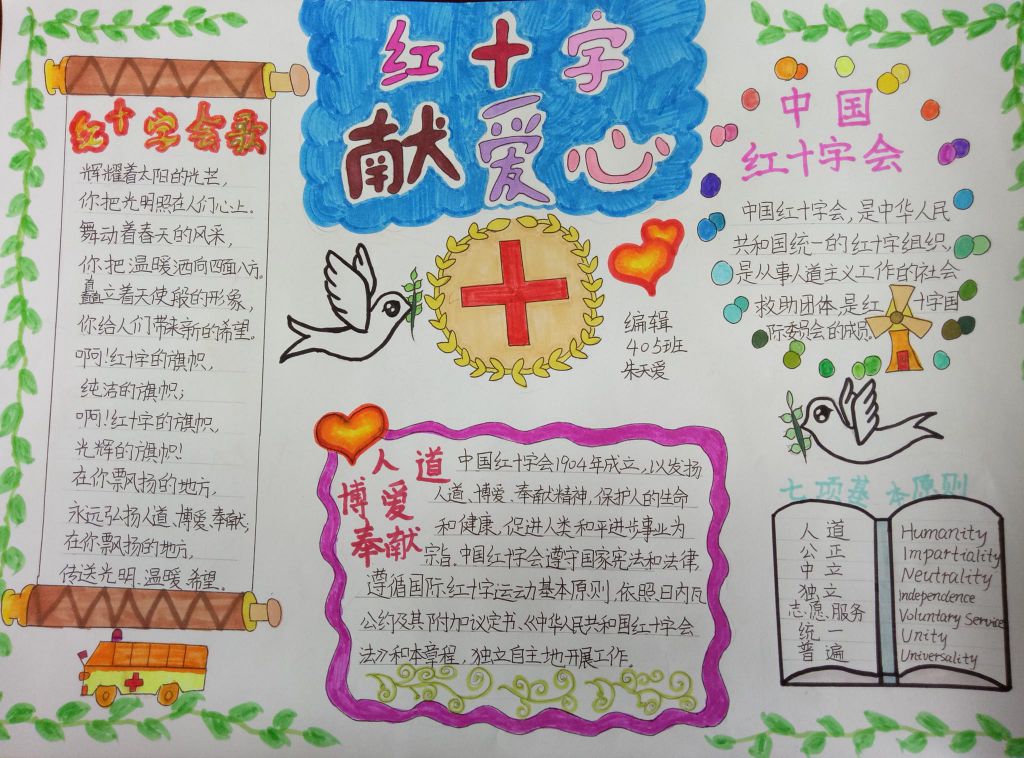 红十字
献爱心
红十字会歌
辉耀着太阳的光芒,
你把光明照在人们心上。
舞动着春天的风采,
你把温暖洒向四面八方。
矗立着天使般的形象,
你给人们带来新的希望。
啊!红十字的旗帜,
纯洁的旗帜;
啊!红十字的旗帜,
光辉的旗帜!
在你票风扬的地方,
永远弘扬人道、博爱、奉献;
在你飘扬的地方,
传送光明、温暖、希望。
编辑
405班
朱天爱
中国
红十字会
中国红十字会,是中华人民
共和国统一的红十字组织,
是从事人道主义工作的社会
救助团体,是红十字国
际委员会的成员
人道
博爱
奉献
中国红十字会1904年成立,以发扬
人道、博爱、奉献精神,保护人的生命
和健康,促进人类和平进步事业为
宗旨。中国红十字会遵守国家宪法和法律,
遵循国际红十字运动基本原则,依照日内瓦
公约及其附加议定书、《中华人民共和国红十字会
法》和本章程,独立自主地开展工作。
七项基本原则
人道
公正
中立
独立
志愿服务
统一
普遍
Humanity
Impartiality
Neutrality
Independence
Voluntary Service
Unity
Universality